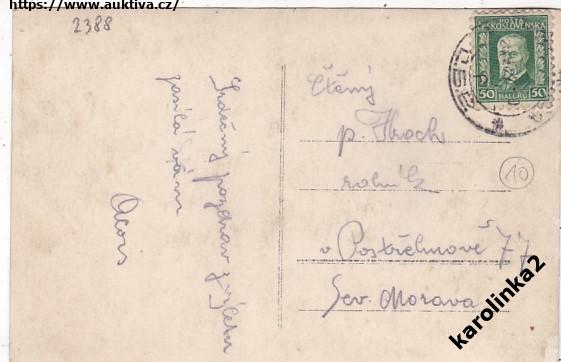 https://www.auktiva.cz/
2388
Srdečný pozdrav z výletu
zasílá Vám
POŠTA
ČESKOSLOVENSKÁ
50 HALÉŘŮ 50
Ctěný
p. Hroch
rolník
v Postřelmově č 77
Sev. Morava
10
karolinka2